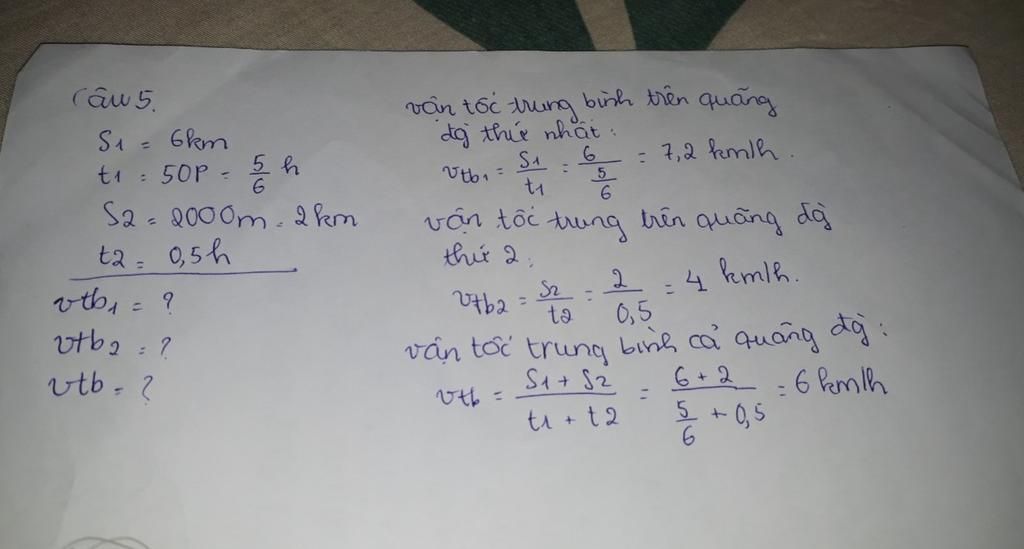 Câu 5.
S1 = 6km
t1 = 50P = 5/6 h
S2 = 2000m = 2km
t2 = 0,5h
vtb1 = ?
vtb2 = ?
vtb = ?
vận tốc trung bình trên quãng
đg thứ nhất:
vtb1 = S1/t1 = 6/(5/6) = 7,2 km/h.
vận tốc trung trên quãng đg
thứ 2:
vtb2 = S2/t2 = 2/0,5 = 4 km/h.
vận tốc trung bình cả quãng đg:
vtb = (S1 + S2)/(t1 + t2) = (6 + 2)/(5/6 + 0,5) = 6 km/h